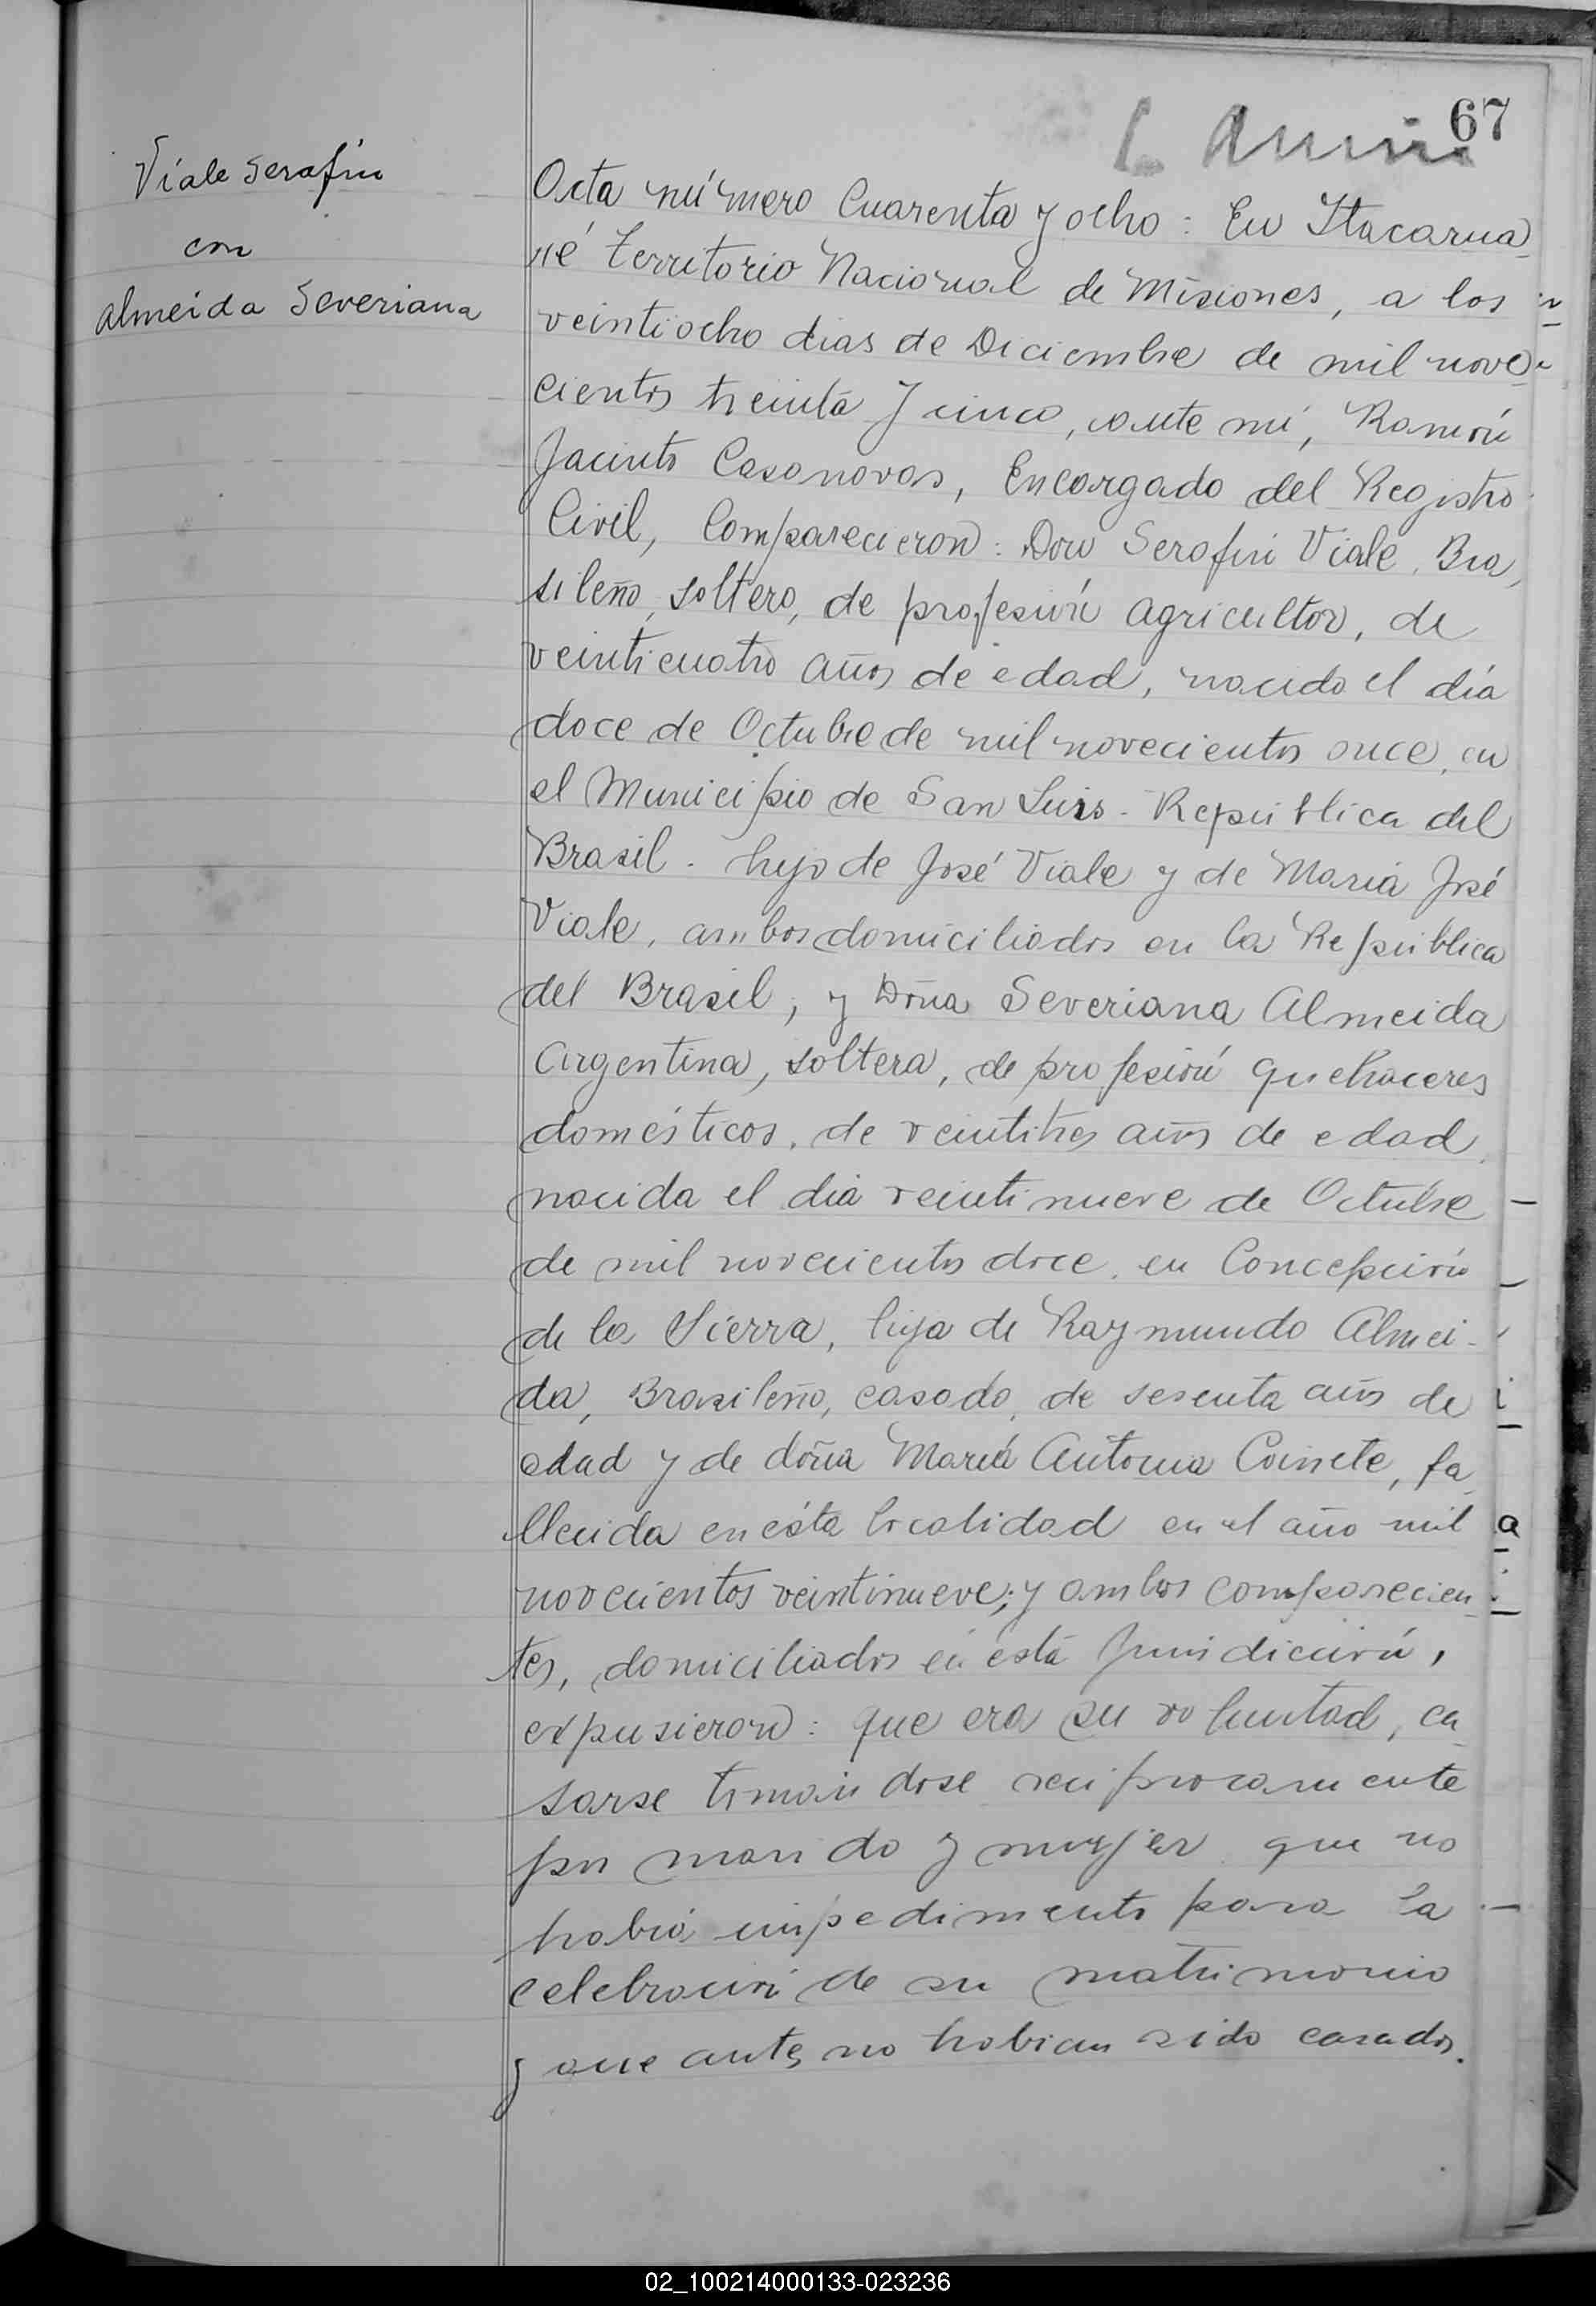 67
Viale Serafin
con
Almeida Severiana
Acta número Cuarenta y ocho: En Itacarua
ré Territorio Nacional de Misiones, a los
veintiocho dias de Diciembre de mil nove
cientos treinta y cinco, ante mí, Ramón
Jacinto Casanovas, Encargado del Registro
Civil, Comparecieron: Don Serafin Viale, Bra
sileño, soltero, de profesión agricultor, de
veinticuatro años de edad, nacido el día
doce de Octubre de mil novecientos once, en
el Municipio de San Luis - República del
Brasil - hijo de José Viale y de Maria José
Viale, ambos domiciliados en la República
del Brasil; y Doña Severiana Almeida
Argentina, soltera, de profesión quehaceres
domésticos, de veintitres años de edad,
nacida el dia veintinueve de Octubre
de mil novecientos doce, en Concepción
de la Sierra, hija de Raymundo Almei-
da, Brasileño, casado, de sesenta años de
edad y de doña María Antonia Coinete, fa
llecida en ésta localidad en el año mil
novecientos veintinueve; y ambos comparecien
tes, domiciliados en ésta Jurisdicción,
expusieron: que era su voluntad, ca
sarse tomándose reciprocamente
por marido y mujer que no
había impedimento para la
celebración de su matrimonio
y que antes no habian sido casados.
02_100214000133-023236